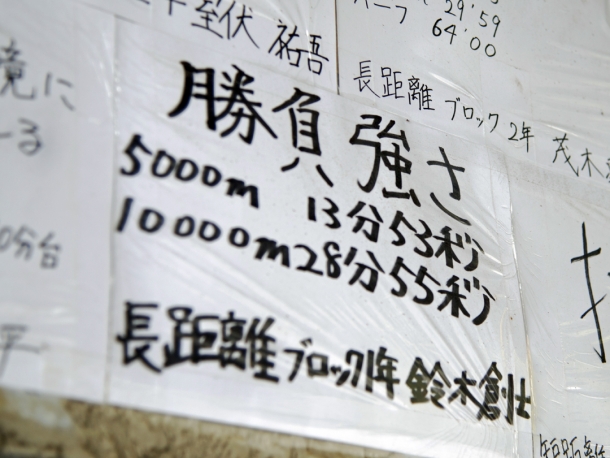 室伏 祐吾
29'59
ハーフ 64'00
長距離 ブロック 2年 茂木
境に
る
0分台
平
勝負強さ
5000m 13分53秒
10000m 28分55秒
長距離ブロック1年 鈴木創士
短距離